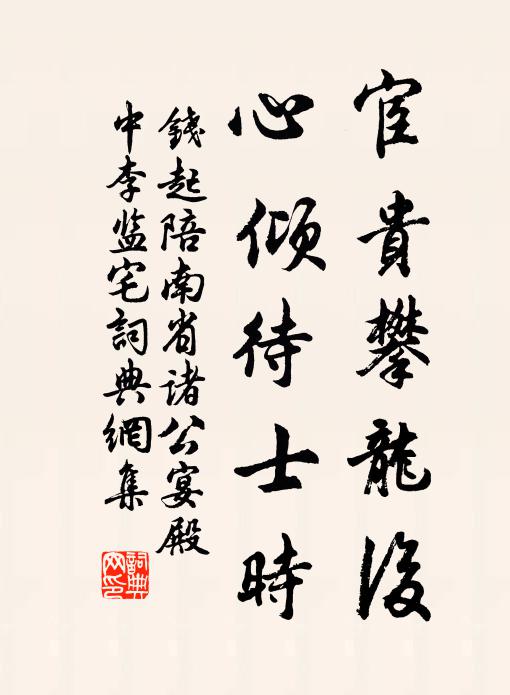 宦貴攀龍後
心傾待士時
錢起陪南省诸公宴殿
中李监宅詞典網集
詞典网印